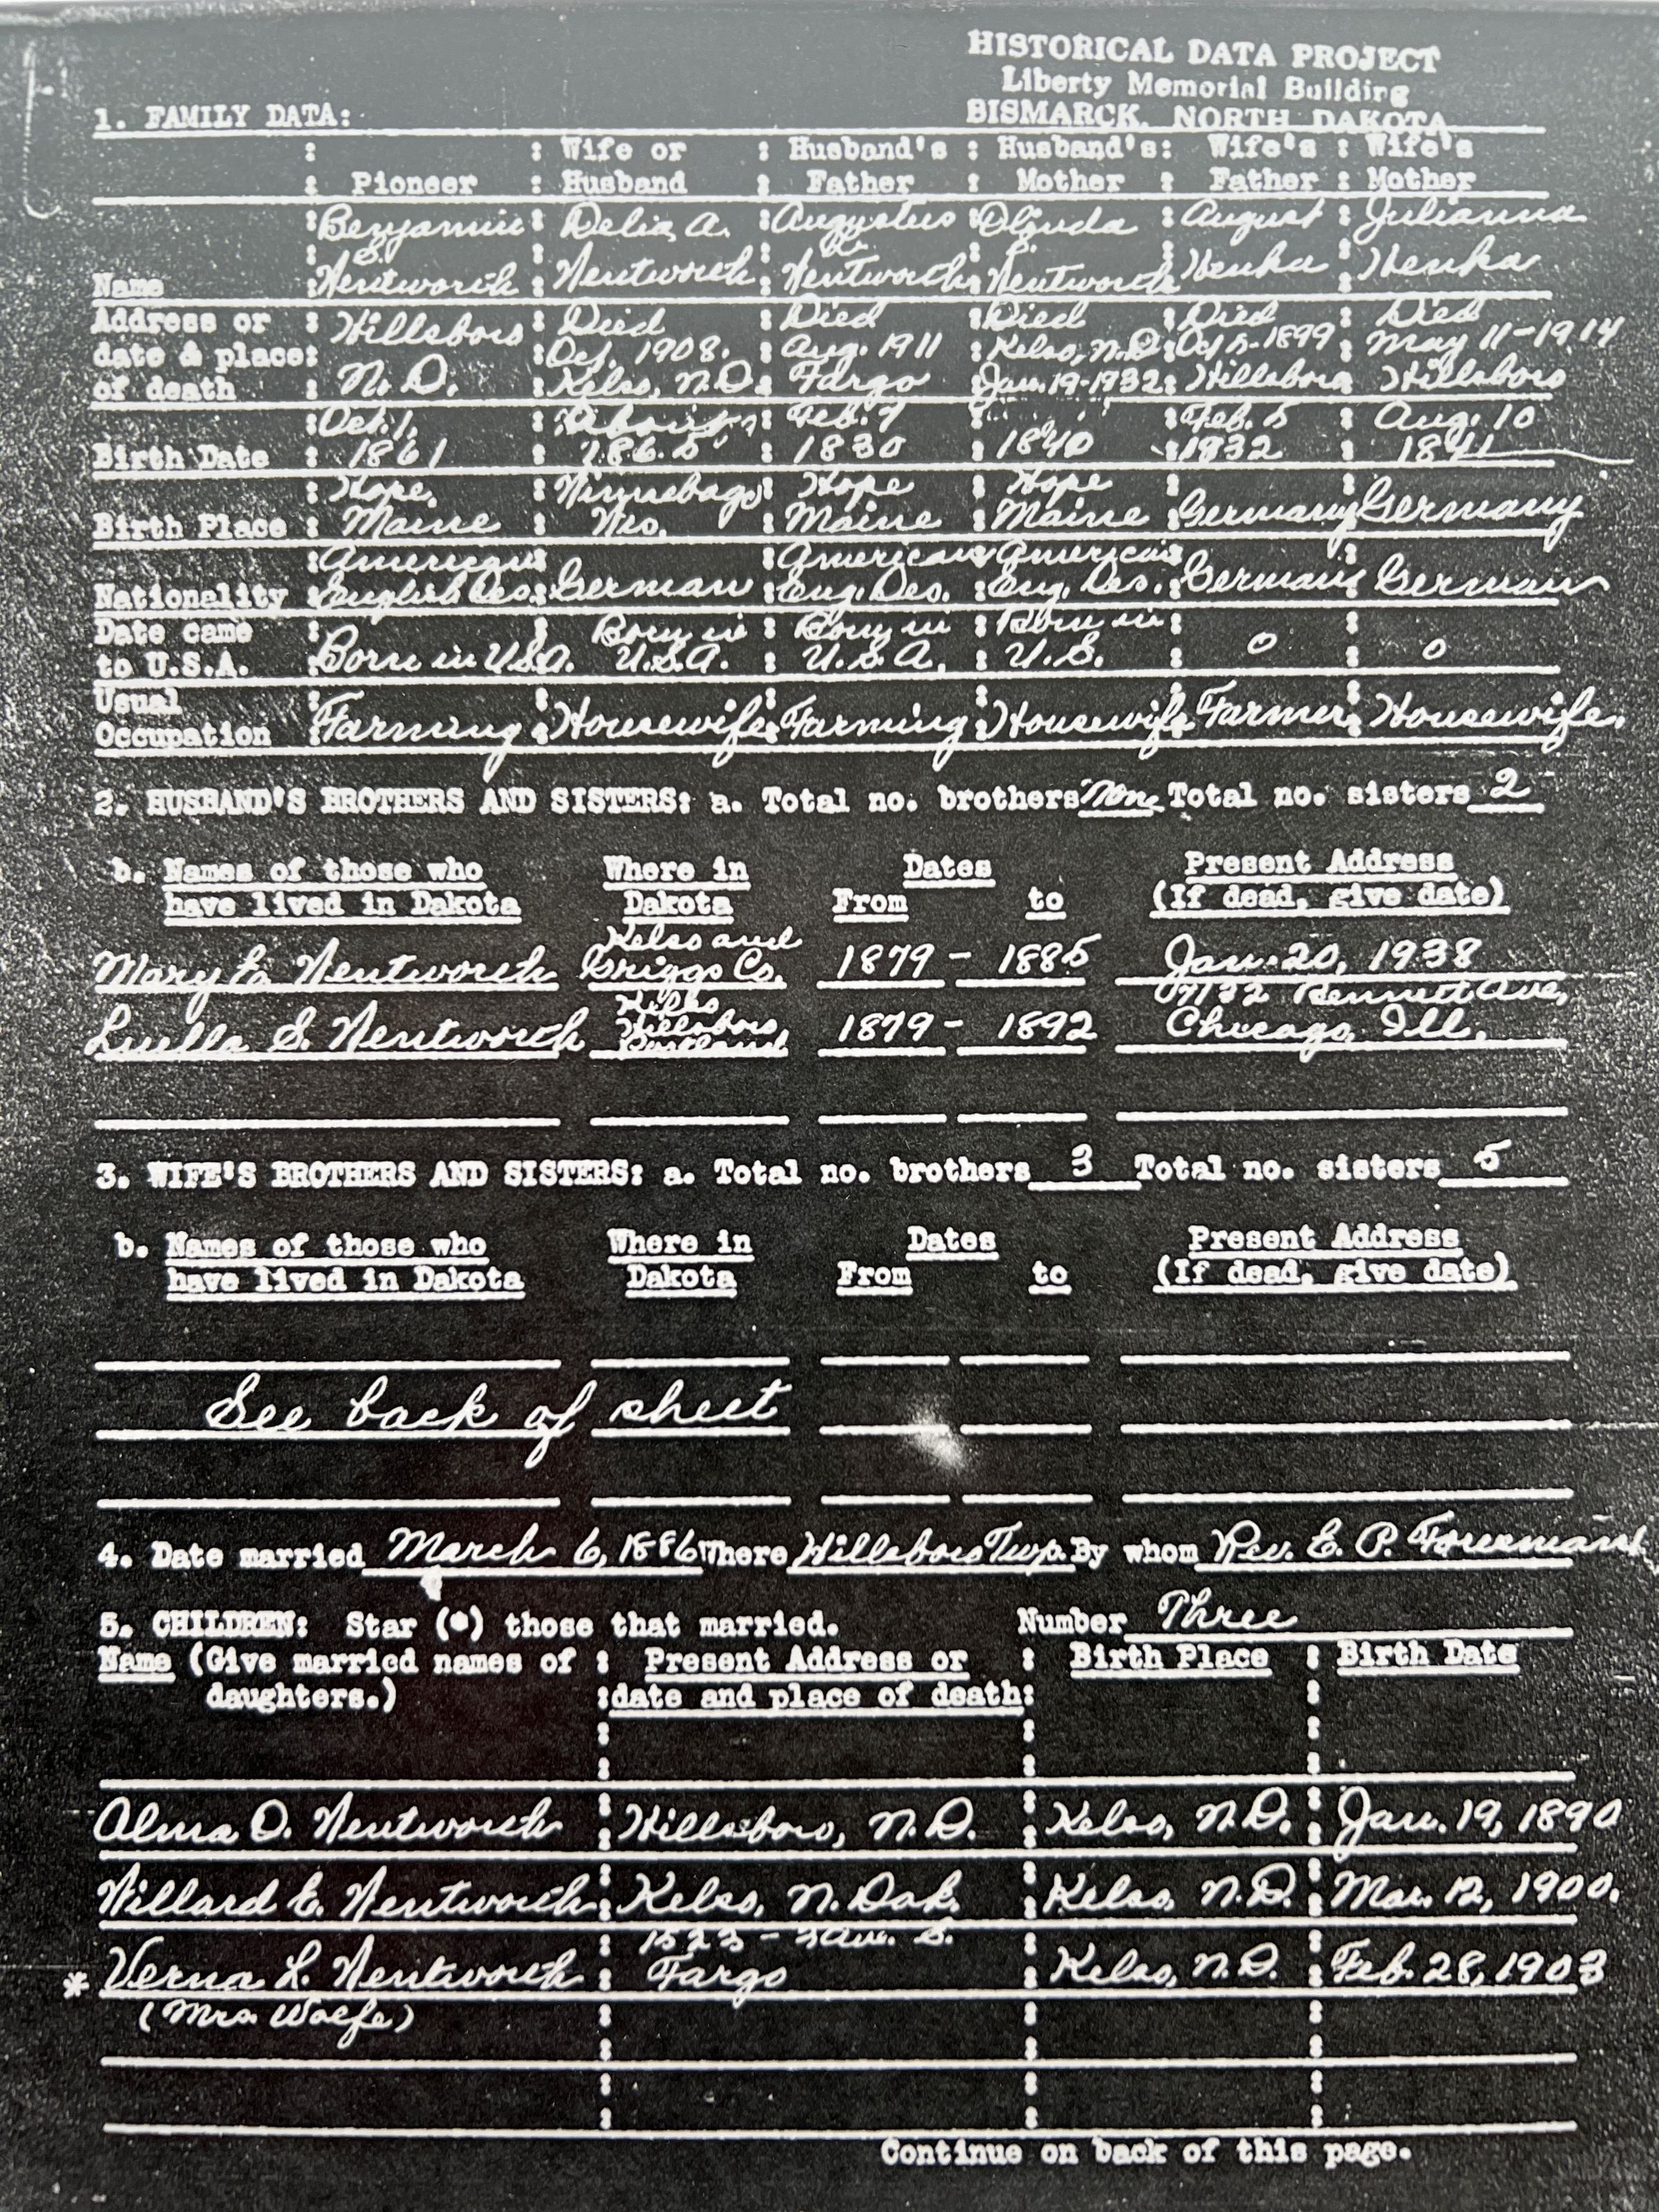 HISTORICAL DATA PROJECT
Liberty Memorial Building
BISMARCK, NORTH DAKOTA
1. FAMILY DATA:
: : Wife or : Husband's : Husband's: Wife's : Wife's
: Pioneer : Husband : Father : Mother : Father : Mother
Benjamin Delia A. Augustus August Julianna
S.
Name Wentworth Wentworth Wentworth Wentworth Henka Henka
Address or Hillsboro Died Died Died Died Died
date & place: 1908. Aug. 1911 Kelso, N.D. 1899 May 11-1914
of death N.D. Kelso, N.D. Fargo Jan. 19-1932 Hillsboro Hillsboro
Oct. 1, About Feb. 7 Feb. 5 Aug. 10
Birth Date 1861 1865 1830 1840 1932 1841
Hope, Winnebago Hope Hope
Birth Place Maine Maine Maine Germany Germany
American American American
Nationality English Des. German Eng. Des. Eng. Des. German German
Date came Born in Born in Born in 0 0
to U.S.A. Born in U.S.A. U.S.A. U.S.A. U.S.
Usual
Occupation Farming Housewife Farming Housewife Farmer Housewife.
2. HUSBAND'S BROTHERS AND SISTERS: a. Total no. brothers None Total no. sisters 2
b. Names of those who Where in Dates Present Address
have lived in Dakota Dakota From to (If dead, give date)
Kelso and
Mary E. Wentworth Griggs Co. 1879 - 1885 Jan. 20, 1938
Kelso 7132 Bennett Ave,
Luella S. Wentworth Hillsboro, 1879 - 1892 Chicago, Ill.
Portland
3. WIFE'S BROTHERS AND SISTERS: a. Total no. brothers 3 Total no. sisters 5
b. Names of those who Where in Dates Present Address
have lived in Dakota Dakota From to (If dead, give date)
See back of sheet
4. Date married March 6, 1886 Where Hillsboro Twp. By whom Rev. E. P.
5. CHILDREN: Star (*) those that married. Number Three
Name (Give married names of : Present Address or : Birth Place : Birth Date
daughters.) :date and place of death:
Alma D. Wentworth Hillsboro, N.D. Kelso, N.D. Jan. 19, 1890
Willard E. Wentworth Kelso, N. Dak. Kelso, N.D. Mar. 12, 1900.
1523 - 3 Ave. S.
* Verna L. Wentworth Fargo Kelso, N.D. Feb. 28, 1903
(Mrs Wolfe)
Continue on back of this page.